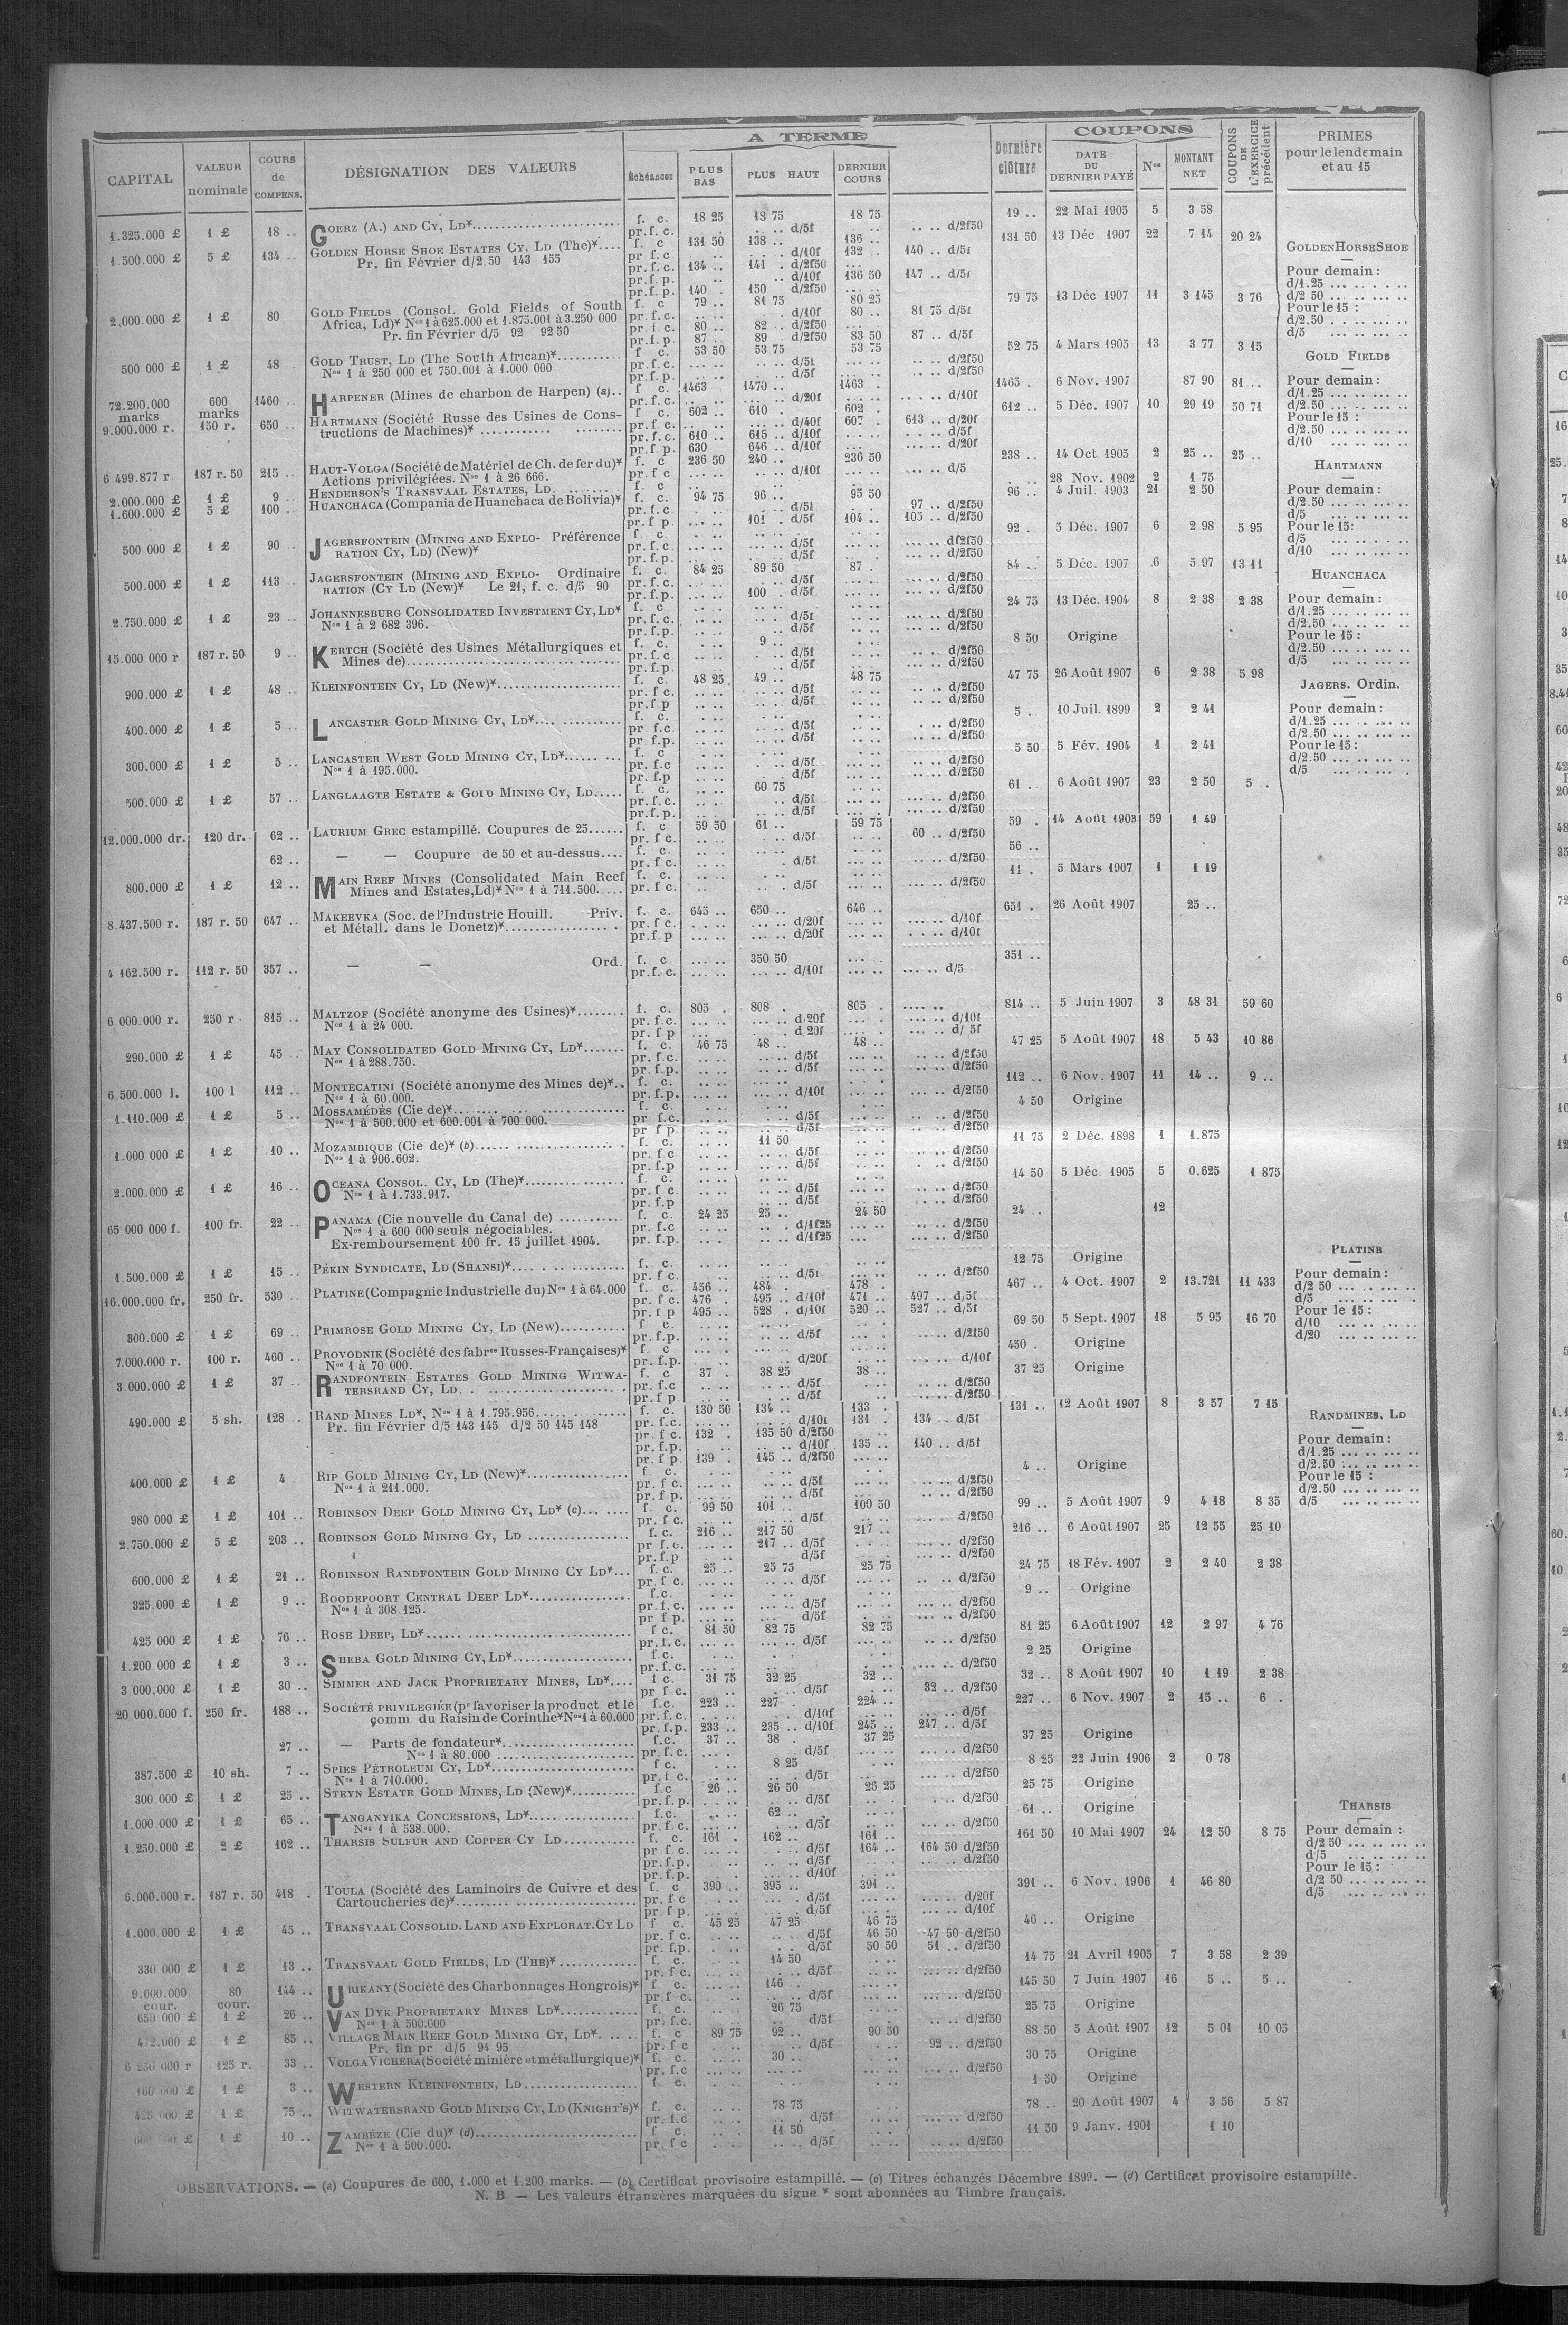 A TERME
COUPONS
CAPITAL | VALEUR nominale | COURS de COMPENS. | DÉSIGNATION DES VALEURS | Échéances | PLUS BAS | PLUS HAUT | DERNIER COURS | Dernière clôture | DATE DU DERNIER PAYÉ | Nos | MONTANT NET | COUPONS DE L'EXERCICE précédent | PRIMES pour le lendemain et au 15
1.325.000 £ 1 £ 18 .. GOERZ (A.) AND CY, LD* f. c. 18 25 18 75 18 75 19 .. 22 Mai 1905 5 3 58
pr.f.c. d/5f d/2f50
1.500.000 £ 5 £ 134 .. GOLDEN HORSE SHOE ESTATES CY, LD (The)* f. c 131 50 138 .. 136 .. 131 50 13 Déc 1907 22 7 14 20 24
Pr. fin Février d/2.50 143 155 pr f.c d/10f 132 .. 140 .. d/5f
pr.f.c. 134 .. 141 . d/2f50
pr.f.p. d/10f 136 50 147 .. d/5f
pr.f.p. 140 . 150 d/2f50
2.000.000 £ 1 £ 80 GOLD FIELDS (Consol. Gold Fields of South f. c 79 .. 81 75 80 25 79 75 13 Déc 1907 11 3 145 3 76
Africa, Ld)* Nos 1 à 625.000 et 1.875.001 à 3.250 000 pr.f.c. d/10f 80 .. 81 75 d/5f
Pr. fin Février d/5 92 92 50 pr f.c. 80 .. 82 .. d/2f50
pr.f.p. 87 .. 89 . d/2f50 83 50 87 .. d/5f
500 000 £ 1 £ 48 GOLD TRUST, LD (The South African)* f c. 53 50 53 75 53 75 52 75 4 Mars 1905 13 3 77 3 15
Nos 1 à 250 000 et 750.001 à 1.000 000 pr.f.c. d/5f d/2f50
pr.f.p. d/5f d/2f50
72.200.000 marks 600 marks 1460 .. HARPENER (Mines de charbon de Harpen) (a) f c. 1463 1470 .. 1463 . 1465 . 6 Nov. 1907 87 90 81 ..
pr.f.c. d/20f d/10f
9.000.000 r. 150 r. 650 .. HARTMANN (Société Russe des Usines de Cons- f. c. 602 .. 610 . 602 . 612 .. 5 Déc. 1907 10 29 19 50 71
tructions de Machines)* pr.f.c. d/40f 607 . 613 .. d/20f
pr.f.c. 610 .. 615 .. d/10f d/5f
pr.f.p. 630 646 .. d/10f d/20f
6 499.877 r 187 r. 50 215 .. HAUT-VOLGA (Société de Matériel de Ch. de fer du)* f. c 236 50 240 .. 236 50 238 .. 14 Oct. 1905 2 25 .. 25 ..
Actions privilégiées. Nos 1 à 26 666. pr f c d/10f d/5
2.000.000 £ 1 £ 9 .. HENDERSON'S TRANSVAAL ESTATES, LD. f c 28 Nov. 1902 2 1 75
1.600.000 £ 5 £ 100 .. HUANCHACA (Compania de Huanchaca de Bolivia)* f. c. 94 75 96 .. 95 50 96 .. 4 Juil. 1903 21 2 50
pr.f.c. d/5f 97 .. d/2f50
pr.f p. 101 . d/5f 104 .. 105 .. d/2f50
500 000 £ 1 £ 90 .. JAGERSFONTEIN (MINING AND EXPLO- Préférence f c. 92 . 5 Déc. 1907 6 2 98 5 95
RATION CY, LD) (New)* pr.f.c. d/5f d/2f50
pr.f.p. d/5f d/2f50
500.000 £ 1 £ 113 .. JAGERSFONTEIN (MINING AND EXPLO- Ordinaire f. c. 84 25 89 50 87 . 84 .. 5 Déc. 1907 6 5 97 13 11
RATION (CY LD (New)* Le 21, f. c. d/5 90 pr.f.c. d/5f d/2f50
pr.f.p. 100 . d/5f d/2f50
2.750.000 £ 1 £ 23 .. JOHANNESBURG CONSOLIDATED INVESTMENT CY, LD* f. c 24 75 13 Déc. 1904 8 2 38 2 38
Nos 1 à 2 682 396. pr.f.c. d/5f d/2f50
pr.f.p. d/5f d/2f50
15.000 000 r 187 r. 50 9 .. KERTCH (Société des Usines Métallurgiques et f. c. 9 .. 8 50 Origine
Mines de) pr.f.c d/5f d/2f50
pr.f.p. d/5f d/2f50
900.000 £ 1 £ 48 .. KLEINFONTEIN CY, LD (New)* f. c. 48 25 49 .. 48 75 47 75 26 Août 1907 6 2 38 5 98
pr. f c. d/5f d/2f50
pr.f.p d/5f d/2f50
400.000 £ 1 £ 5 .. LANCASTER GOLD MINING CY, LD* f. c. 5 .. 10 Juil. 1899 2 2 41
pr.f.c. d/5f d/2f50
pr.f.p. d/5f d/2f50
300.000 £ 1 £ 5 .. LANCASTER WEST GOLD MINING CY, LD* f. c 5 50 5 Fév. 1904 1 2 41
Nos 1 à 195.000. pr.f.c d/5f d/2f50
pr.f.p d/5f d/2f50
500.000 £ 1 £ 57 .. LANGLAAGTE ESTATE & GOLD MINING CY, LD f. c. 60 75 61 .. 6 Août 1907 23 2 50 5 .
pr.f.c. d/5f d/2f50
pr.f.p. d/5f d/2f50
12.000.000 dr. 120 dr. 62 .. LAURIUM GREC estampillé. Coupures de 25 f. c. 59 50 61 .. 59 75 59 . 14 Août 1903 59 1 49
pr. f c. d/5f 60 .. d/2f50
62 .. — — Coupure de 50 et au-dessus f. c. 56 ..
pr. f c. d/5f d/2f50
800.000 £ 1 £ 12 .. MAIN REEF MINES (Consolidated Main Reef f. c. 11 . 5 Mars 1907 1 1 19
Mines and Estates, Ld)* Nos 1 à 711.500. pr. f c. d/5f d/2f50
8.437.500 r. 187 r. 50 647 .. MAKEEVKA (Soc. de l'Industrie Houill. Priv. f. c. 645 .. 650 .. 646 .. 651 . 26 Août 1907 25 ..
et Métall. dans le Donetz)* pr. f c. d/20f d/10f
pr.f p d/20f d/10f
4 162.500 r. 112 r. 50 357 .. — — Ord. f. c 350 50 351 ..
pr.f.c. d/10f d/5
6 000.000 r. 250 r 815 .. MALTZOF (Société anonyme des Usines)* f. c. 805 . 808 . 805 . 814 .. 5 Juin 1907 3 48 31 59 60
Nos 1 à 24 000. pr. f.c. d/20f d/10f
pr. f p d/20f d/ 5f
290.000 £ 1 £ 45 .. MAY CONSOLIDATED GOLD MINING CY, LD* f. c. 46 75 48 .. 48 .. 47 25 5 Août 1907 18 5 43 10 86
Nos 1 à 288.750. pr. f.c. d/5f d/2f50
pr. f.p. d/5f d/2f50
6.500.000 l. 100 l 112 .. MONTECATINI (Société anonyme des Mines de)* f. c. 112 .. 6 Nov. 1907 11 14 .. 9 ..
Nos 1 à 60.000. pr.f.p. d/10f d/2f50
1.110.000 £ 1 £ 5 .. MOSSAMÉDÈS (Cie de)* f. c. 4 50 Origine
Nos 1 à 500.000 et 600.001 à 700 000. pr f.c. d/5f d/2f50
pr f p d/5f d/2f50
1.000 000 £ 1 £ 10 .. MOZAMBIQUE (Cie de)* (b) f. c. 11 50 11 75 2 Déc. 1898 1 1.875
Nos 1 à 906.602. pr. f.c d/5f d/2f50
pr. f.p d/5f d/2f50
2.000.000 £ 1 £ 16 .. OCEANA CONSOL. CY, LD (The)* f. c. 14 50 5 Déc. 1905 5 0.625 1 875
Nos 1 à 1.733.917. pr. f c. d/5f d/2f50
pr. f.p d/5f d/2f50
65 000 000 f. 100 fr. 22 .. PANAMA (Cie nouvelle du Canal de) f. c. 24 25 25 .. 24 50 24 .. 12
Nos 1 à 600 000 seuls négociables. pr. f.c d/1f25 d/2f50
Ex-remboursement 100 fr. 15 juillet 1904. pr. f.p. d/1f25 d/2f50
1.500.000 £ 1 £ 15 .. PÉKIN SYNDICATE, LD (SHANSI)* f. c. 12 75 Origine
pr. f c. d/5f d/2f50
16.000.000 fr. 250 fr. 530 .. PLATINE (Compagnie Industrielle du) Nos 1 à 64.000 f. c. 456 .. 484 . 478 467 .. 4 Oct. 1907 2 13.721 11 433
pr. f c. 476 . 495 .. d/10f 471 .. 497 .. d/5f
pr. f p 495 .. 528 . d/10f 520 .. 527 .. d/5f
300.000 £ 1 £ 69 .. PRIMROSE GOLD MINING CY, LD (New) f. c. 69 50 5 Sept. 1907 18 5 95 16 70
pr.f.p. d/5f d/2f50
7.000.000 r. 100 r. 460 .. PROVODNIK (Société des fabres Russes-Françaises)* f. c 450 . Origine
Nos 1 à 70 000. pr. f.p. d/20f d/10f
3.000.000 £ 1 £ 37 .. RANDFONTEIN ESTATES GOLD MINING WITWA- f. c 37 . 38 25 38 .. 37 25 Origine
TERSRAND CY, LD. pr. f.c d/5f d/2f50
pr.f p d/5f d/2f50
490.000 £ 5 sh. 128 .. RAND MINES LD*, Nos 1 à 1.795.956 f. c. 130 50 134 .. 133 . 131 .. 12 Août 1907 8 3 57 7 15
Pr. fin Février d/5 143 145 d/2 50 145 148 pr. f.c. d/10f 131 . 134 .. d/5f
pr. f c. 132 . 135 50 d/2f50
pr. f.p. d/10f 135 .. 140 .. d/5f
pr. f p 139 . 145 .. d/2f50
400.000 £ 1 £ 4 . RIP GOLD MINING CY, LD (New)* f c. 4 .. Origine
Nos 1 à 211.000. pr. f c. d/5f d/2f50
pr. f p. d/5f d/2f50
980 000 £ 1 £ 101 .. ROBINSON DEEP GOLD MINING CY, LD* (c) f. c 99 50 101 .. 100 50 99 .. 5 Août 1907 9 4 18 8 35
pr. f c. d/5f d/2f50
2.750.000 £ 5 £ 203 .. ROBINSON GOLD MINING CY, LD f. c. 216 .. 217 50 217 .. 216 .. 6 Août 1907 25 12 55 25 10
pr f.c. 217 .. d/5f d/2f50
pr.f.p d/5f d/2f50
600.000 £ 1 £ 21 .. ROBINSON RANDFONTEIN GOLD MINING CY LD* f. c. 25 .. 25 75 25 75 24 75 18 Fév. 1907 2 2 40 2 38
pr. f c. d/5f d/2f50
325.000 £ 1 £ 9 .. ROODEPOORT CENTRAL DEEP LD* f.c. 9 .. Origine
Nos 1 à 308.125. pr. f c. d/5f d/2f50
pr f p. d/5f d/2f50
425 000 £ 1 £ 76 .. ROSE DEEP, LD* f c. 81 50 82 75 82 75 81 25 6 Août 1907 12 2 97 4 76
pr.f.c. d/5f d/2f50
1.200 000 £ 1 £ 3 .. SHEBA GOLD MINING CY, LD* f.c. 2 25 Origine
pr. f.c. d/2f50
3 000.000 £ 1 £ 30 .. SIMMER AND JACK PROPRIETARY MINES, LD* f c. 31 75 32 25 32 .. 32 .. 8 Août 1907 10 1 19 2 38
pr f c. d/5f 32 .. d/2f50
20.000.000 f. 250 fr. 188 .. SOCIÉTÉ PRIVILEGIÉE (pr favoriser la product et le f.c. 223 .. 227 . 224 .. 227 .. 6 Nov. 1907 2 15 .. 6 ..
comm du Raisin de Corinthe* Nos 1 à 60.000 pr. f.c. d/10f d/5f
pr. f.p. 233 .. 235 .. d/10f 245 .. 247 .. d/5f
27 .. — Parts de fondateur* f.c. 37 .. 38 . 37 25 37 25 Origine
Nos 1 à 80.000 pr. f.c. d/5f d/2f50
387.500 £ 10 sh. 7 .. SPIES PÉTROLEUM CY, LD* f c. 8 25 8 25 22 Juin 1906 2 0 78
Nos 1 à 710.000. pr. f c. d/5f d/2f50
300 000 £ 1 £ 25 .. STEYN ESTATE GOLD MINES, LD (New)* f.c 26 .. 26 50 26 25 25 75 Origine
pr. f.p. d/5f d/2f50
1.000.000 £ 1 £ 65 .. TANGANYIKA CONCESSIONS, LD* f. c. 62 .. 61 .. Origine
Nos 1 à 538.000. pr. f.c. d/5f d/2f50
1.250.000 £ 2 £ 162 .. THARSIS SULFUR AND COPPER CY LD f. c. 161 . 162 .. 161 .. 161 50 10 Mai 1907 24 12 50 8 75
pr f c. d/5f 164 .. 164 50 d/2f50
pr.f.p. d/5f d/2f50
pr.f.p. d/10f
6.000.000 r. 187 r. 50 418 . TOULA (Société des Laminoirs de Cuivre et des f. c 390 .. 395 .. 391 .. 391 .. 6 Nov. 1906 1 46 80
Cartoucheries de)* pr. f c d/5f d/20f
pr f p. d/5f d/10f
1.000.000 £ 1 £ 45 .. TRANSVAAL CONSOLID. LAND AND EXPLORAT. CY LD f c. 45 25 47 25 46 75 46 .. Origine
pr. f c. d/5f 46 50 47 50 d/2f50
pr. f.p. d/5f 50 50 51 .. d/2f50
330 000 £ 1 £ 13 .. TRANSVAAL GOLD FIELDS, LD (THE)* f. c. 14 50 14 75 21 Avril 1905 7 3 58 2 39
pr. f c. d/5f d/2f50
9.000.000 cour. 80 cour. 144 .. URIKANY (Société des Charbonnages Hongrois)* f. c. 146 . 145 50 7 Juin 1907 16 5 .. 5 ..
pr.f c. d/5f d/2f50
650 000 £ 1 £ 26 .. VAN DYK PROPRIETARY MINES LD* f. c. 26 75 25 75 Origine
Nos 1 à 500.000 pr. f.c. d/5f d/2f50
472.000 £ 1 £ 85 .. VILLAGE MAIN REEF GOLD MINING CY, LD* f. c 89 75 92 .. 90 50 88 50 5 Août 1907 12 5 01 10 05
Pr. fin pr d/5 94 95 pr. f c d/5f 92 .. d/2f50
6 250 000 r 125 r. 33 .. VOLGA VICHERA (Société minière et métallurgique)* f. c. 30 .. 30 75 Origine
pr. f.c d/2f50
160.000 £ 1 £ 3 .. WESTERN KLEINFONTEIN, LD f. c. 1 50 Origine
425 000 £ 1 £ 75 .. WITWATERSRAND GOLD MINING CY, LD (KNIGHT'S)* f. c. 78 75 78 .. 20 Août 1907 4 3 56 5 87
pr. f.c d/5f d/2f50
1 £ 10 .. ZAMBÈZE (Cie du)* (d) f c. 11 50 11 50 9 Janv. 1901 1 10
Nos 1 à 500.000. pr. f c d/5f d/2f50
GOLDEN HORSE SHOE
Pour demain :
d/1.25
d/2 50
Pour le 15 :
d/2.50
d/5
GOLD FIELDS
Pour demain :
d/1.25
d/2.50
Pour le 15 :
d/2.50
d/10
HARTMANN
Pour demain :
d/2.50
d/5
Pour le 15 :
d/5
d/10
HUANCHACA
Pour demain :
d/1.25
d/2.50
Pour le 15 :
d/2.50
d/5
JAGERS. Ordin.
Pour demain :
d/1.25
d/2.50
Pour le 15 :
d/2.50
d/5
PLATINE
Pour demain :
d/2 50
d/5
Pour le 15 :
d/10
d/20
RANDMINES, LD
Pour demain :
d/1.25
d/2.50
Pour le 15 :
d/2.50
d/5
THARSIS
Pour demain :
d/2 50
d/5
Pour le 15 :
d/2 50
d/5
OBSERVATIONS. — (a) Coupures de 600, 1.000 et 1.200 marks. — (b) Certificat provisoire estampillé. — (c) Titres échangés Décembre 1899. — (d) Certificat provisoire estampillé.
N. B — Les valeurs étrangères marquées du signe * sont abonnées au Timbre français.